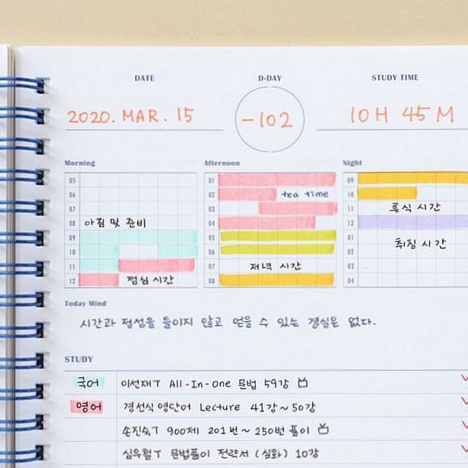 DATE D-DAY STUDY TIME
2020. MAR. 15 -102 10H 45M
Morning Afternoon Night
05 01 09
06 02 tea time 10
07 03 11 휴식 시간
08 아침 및 준비 04 12
09 05 01 취침 시간
10 06 02
11 07 저녁 시간 03
12 점심 시간 08 04
Today Mind
시간과 정성을 들이지 않고 얻을 수 있는 결실은 없다.
STUDY
국어 이선재T All-In-One 문법 59강
영어 경선식 영단어 Lecture 41강~50강
손진숙T 900제 201번~250번 풀이
심우철T 문법풀이 전략서 (심화) 10강